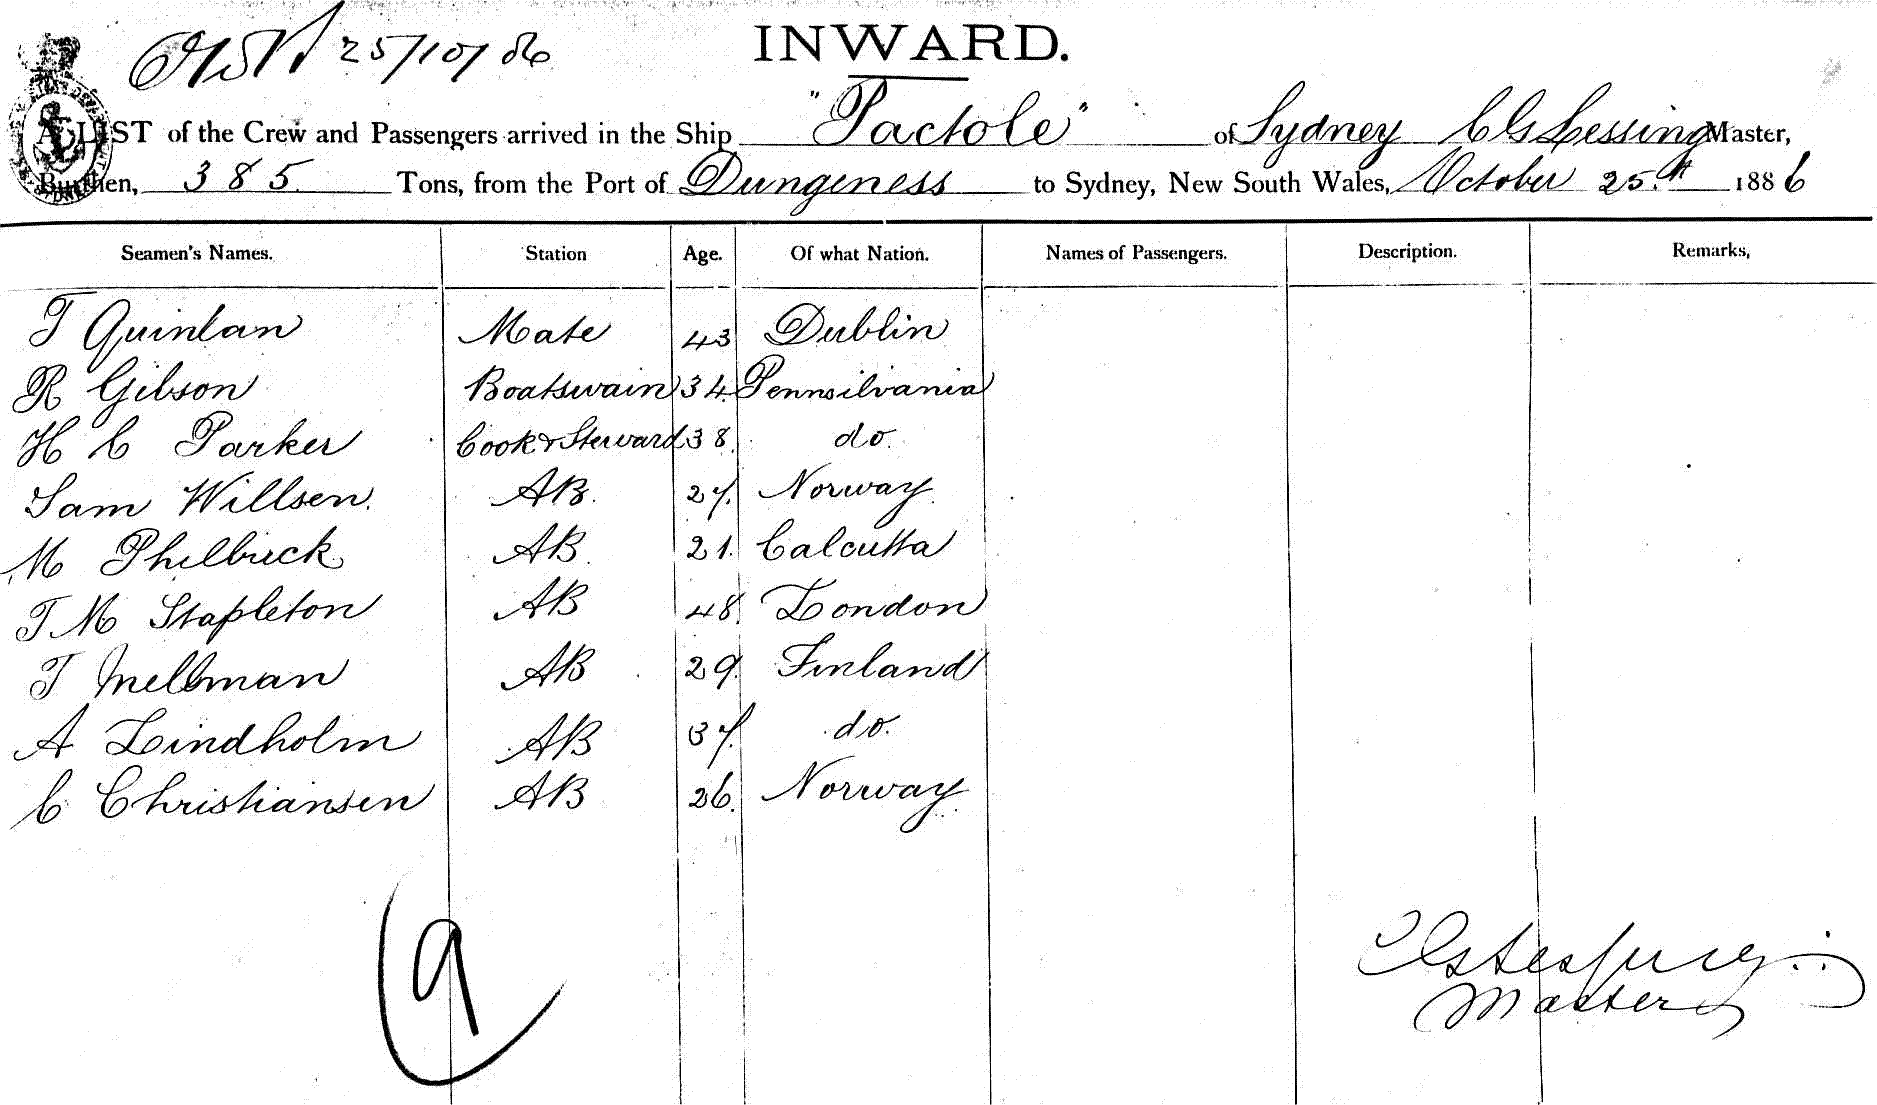 25/10/86
INWARD.
A LIST of the Crew and Passengers arrived in the Ship "Pactole" of Sydney C G Lessing Master,
Burthen, 385 Tons, from the Port of Dungeness to Sydney, New South Wales, October 25th 1886
Seamen's Names. Station Age. Of what Nation. Names of Passengers. Description. Remarks,
T Quinlan Mate 43 Dublin
R Gibson Boatswain 34. Pennsilvania
H C Parker Cook & Steward 38. do.
Sam Willsen. AB. 27. Norway
M Philbrick AB 21. Calcutta
T M Stapleton AB 48. London
T Mellman AB 29. Finland
A Lindholm AB 37. do.
C Christiansen AB 26. Norway
9
C G Lessing
Master